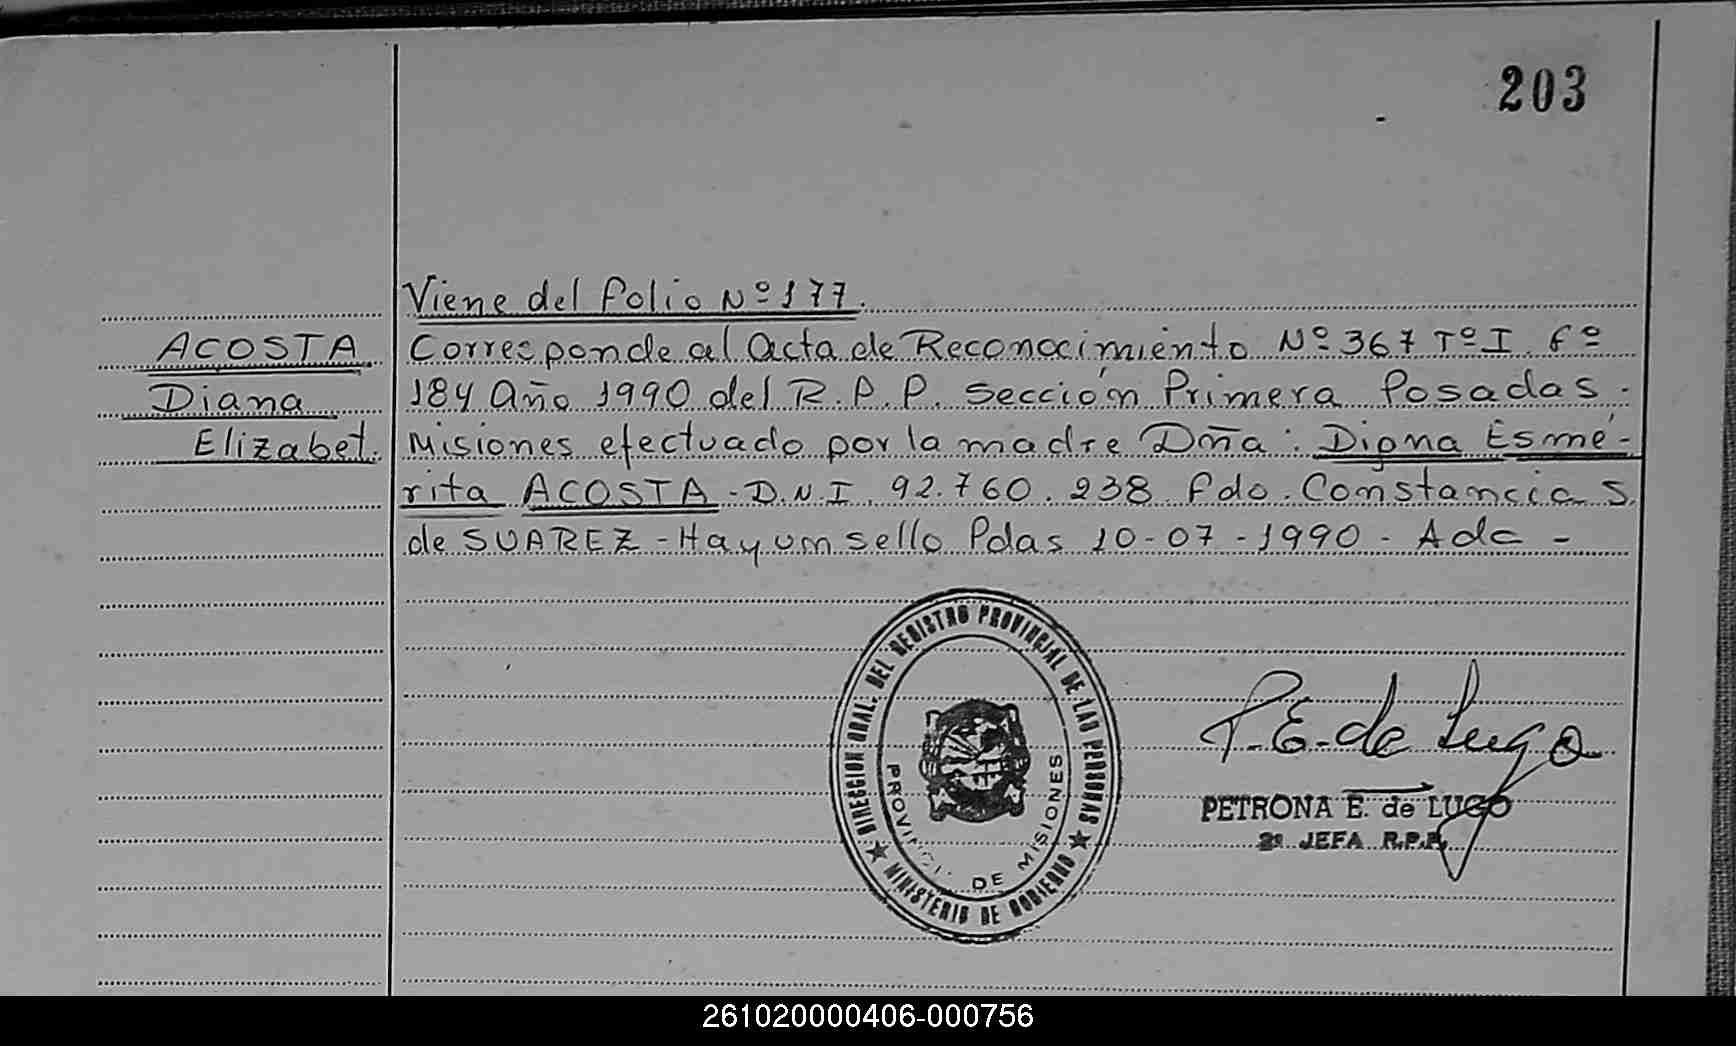 203
Viene del folio Nº 177.
ACOSTA Corresponde al Acta de Reconocimiento Nº 367 Tº I Fº
Diana 184 Año 1990 del R.P.P. Sección Primera Posadas.
Elizabet. Misiones efectuado por la madre Dña: Digna Esme-
rita ACOSTA - D.N.I. 92.760.238 Fdo. Constancia S.
de SUAREZ - Hay un sello Pdas 10-07-1990 - Adc -
DIRECCION GRAL. DEL REGISTRO PROVINCIAL DE LAS PERSONAS
MINISTERIO DE GOBIERNO
DE MISIONES
P.E. de Lugo
PETRONA E. de LUGO
JEFA R.P.P.
261020000406-000756